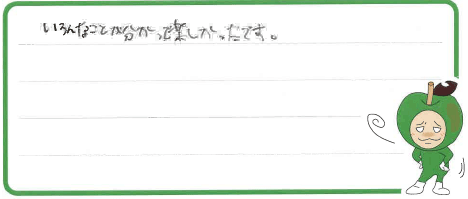 いろんなことが分かって楽しかったです。